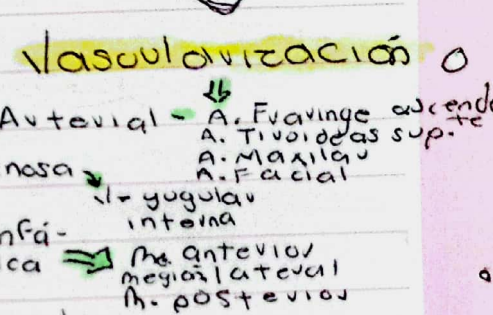 Vascularización
Arterial - A. Faringe ascende
te
A. Tiroideas sup.
A. Maxilar
A. Facial
nosa
V- yugular
interna
nfá-
ica => anterior
lateral
posterior